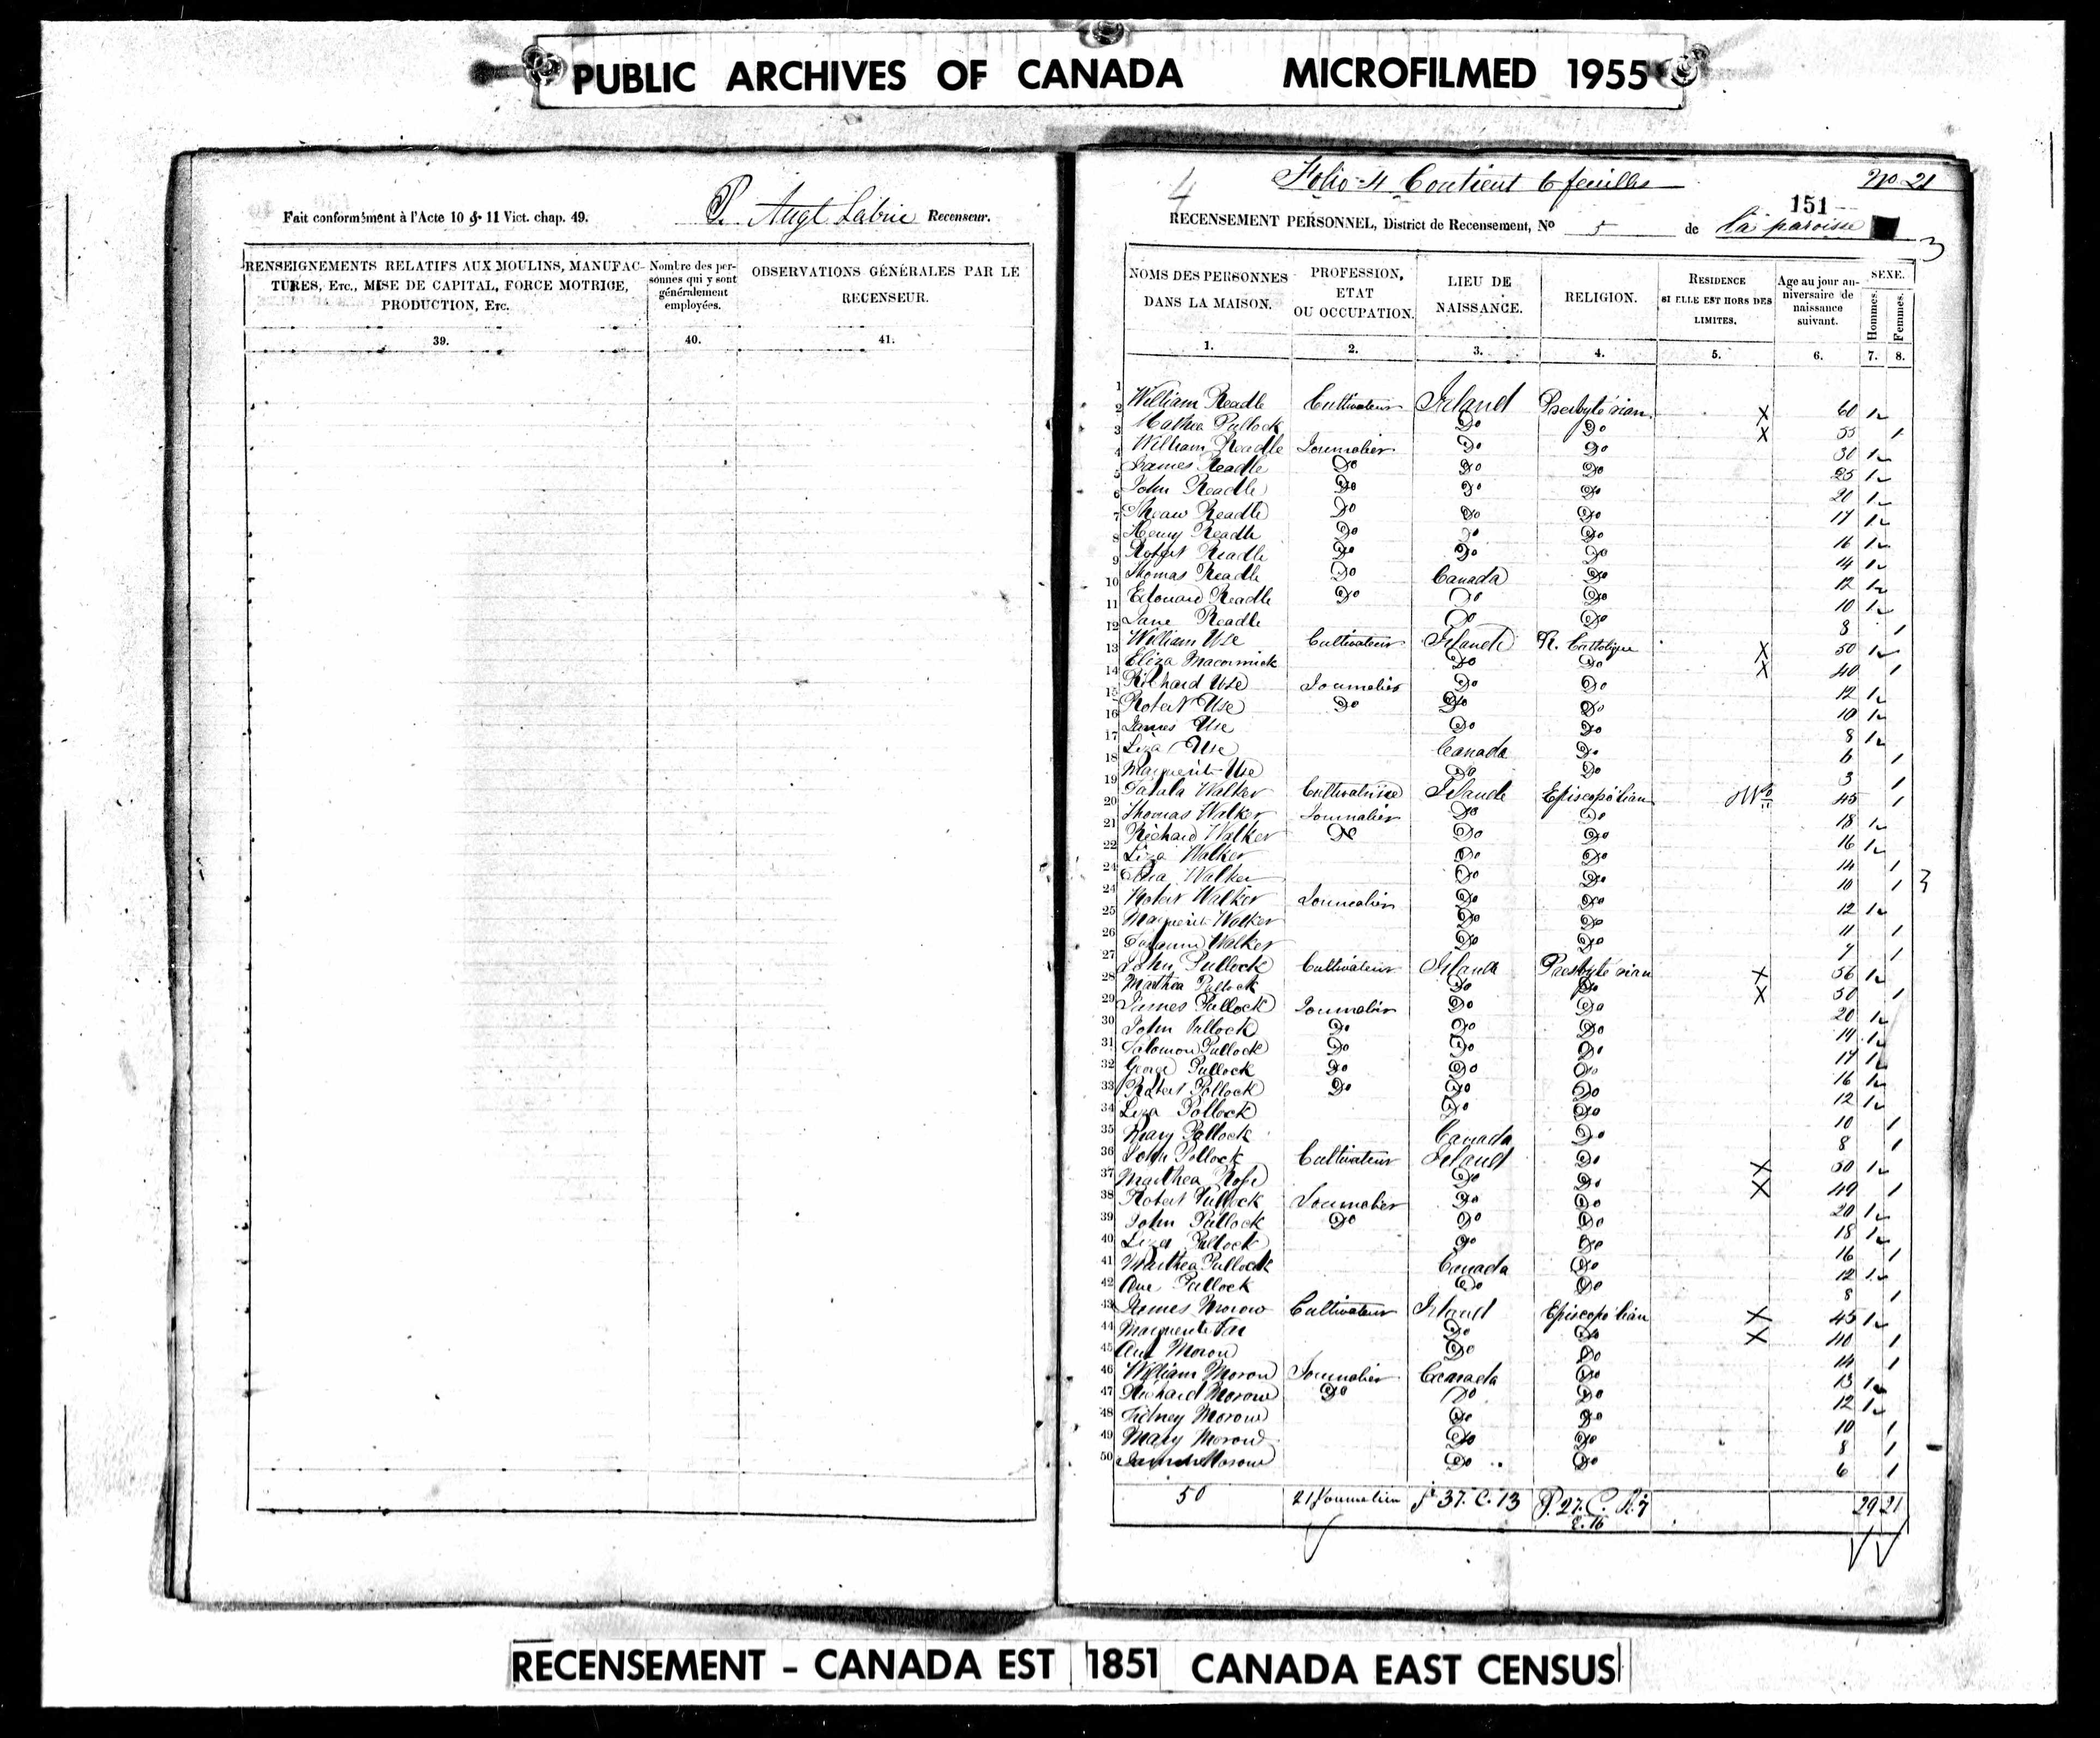 PUBLIC ARCHIVES OF CANADA MICROFILMED 1955
Fait conformément à l'Acte 10 & 11 Vict. chap. 49. P. Augt Labrie Recenseur.
RENSEIGNEMENTS RELATIFS AUX MOULINS, MANUFAC-
TURES, Etc., MISE DE CAPITAL, FORCE MOTRICE,
PRODUCTION, Etc.
Nombre des per-
sonnes qui y sont
généralement
employées.
OBSERVATIONS GÉNÉRALES PAR LE
RECENSEUR.
39. 40. 41.
4 Folio 4 Contient 6 feuilles No 21
151
RECENSEMENT PERSONNEL, District de Recensement, No 5 de la paroisse
3
NOMS DES PERSONNES
DANS LA MAISON.
PROFESSION,
ETAT
OU OCCUPATION.
LIEU DE
NAISSANCE.
RELIGION.
RESIDENCE
SI ELLE EST HORS DES
LIMITES.
Age au jour an-
niversaire de
naissance
suivant.
SEXE.
Hommes.
Femmes.
1. 2. 3. 4. 5. 6. 7. 8.
1 William Readle Cultivateur Irland Presbytérian X 60 1
2 Mathea Pullock Do Do X 55 1
3 William Readle Journalier Do Do 30 1
4 James Readle Do Do Do 25 1
5 John Readle Do Do Do 20 1
6 Readle Do Do Do 17 1
7 Henry Readle Do Do Do 16 1
8 Robert Readle Do Do Do 14 1
9 Thomas Readle Do Canada Do 12 1
10 Edouard Readle Do Do Do 10 1
11 Jane Readle Do Do 8 1
12 William Use Cultivateur Irlande R. Catholique X 50 1
13 Eliza Macormick Do Do X 40 1
14 Richard Use Journalier Do Do 12 1
15 Robert Use Do Do Do 10 1
16 James Use Do Do 8 1
17 Liza Use Canada Do 6 1
18 Marguerite Use Do Do 3 1
19 Walker Cultivatrice Irlande Episcopólian 45 1
20 Thomas Walker Journalier Do Do 18 1
21 Richard Walker Do Do Do 16 1
22 Liza Walker Do Do 14 1
24 Walker Do Do 10 1 3
24 Robert Walker Journalier Do Do 12 1
25 Marguerite Walker Do Do 11 1
26 Walker Do Do 7 1
27 John Pullock Cultivateur Irlande Presbytérian X 56 1
28 Mathea Pullock Do Do X 50 1
29 James Pullock Journalier Do Do 20 1
30 John Pullock Do Do Do 19 1
31 Salomon Pullock Do Do Do 17 1
32 George Pullock Do Do Do 16 1
33 Robert Pollock Do Do Do 12 1
34 Liza Pollock Do Do 10 1
35 Mary Pollock Canada Do 8 1
36 John Pollock Cultivateur Irland Do X 50 1
37 Marthea Rose Do Do X 49 1
38 Robert Pullock Journalier Do Do 20 1
39 John Pullock Do Do Do 18 1
40 Liza Pullock Do Do 16 1
41 Marthea Pullock Canada Do 12 1
42 Ane Pullock Do Do 8 1
43 James Morow Cultivateur Irland Episcopólian X 45 1
44 Marguerite Do Do X 40 1
45 Ane Morow Do Do 14 1
46 William Morow Journalier Canada Do 13 1
47 Richard Morow Do Do Do 12 1
48 Sidney Morow Do Do 10 1
49 Mary Morow Do Do 8 1
50 Morow Do Do 6 1
50 21 Journalier Ir 37. C. 13 P. 27. C. R. 7 29 21
E. 16
RECENSEMENT - CANADA EST 1851 CANADA EAST CENSUS